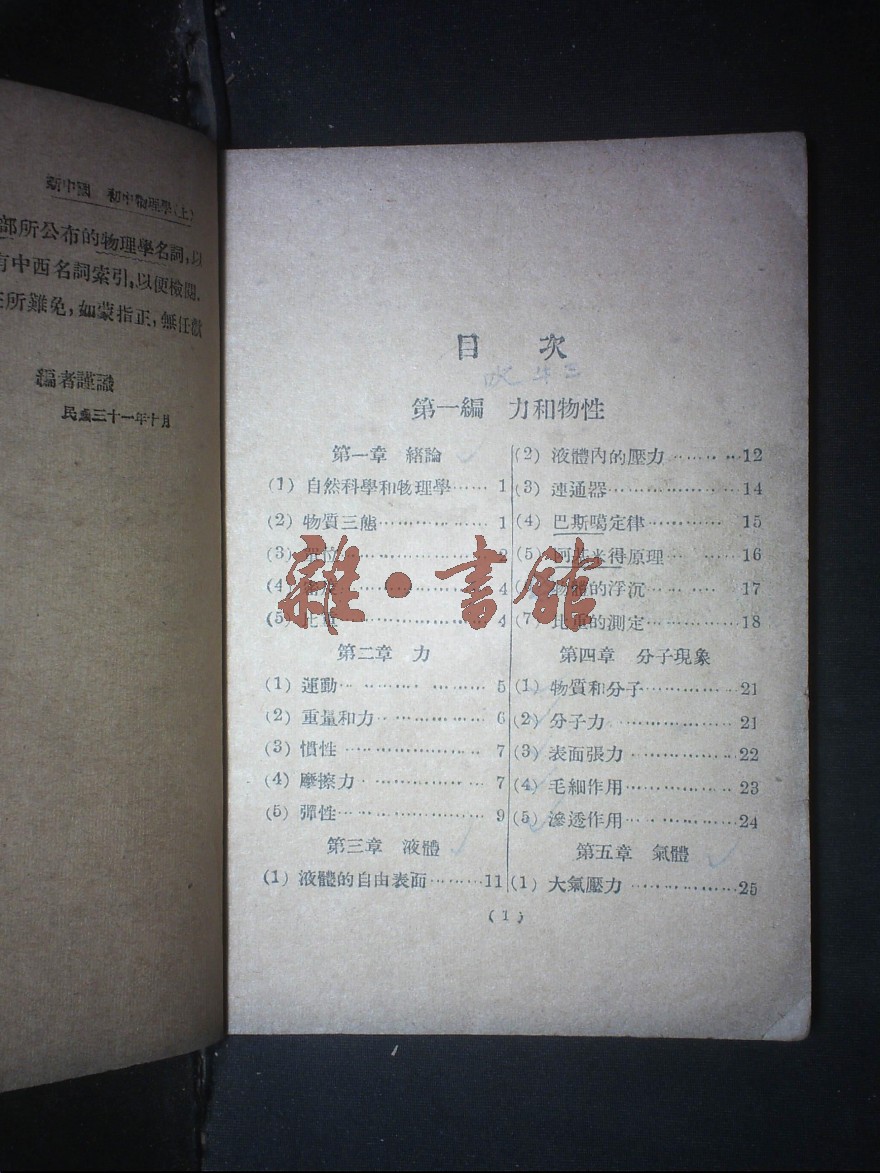 新中國 初中物理學(上)
部所公布的物理學名詞,以
有中西名詞索引,以便檢閱.
所難免,如蒙指正,無任歡
編者謹識
民國三十一年十月
目 次
第一編 力和物性
第一章 緒論
(1) 自然科學和物理學…… 1
(2) 物質三態……………… 1
(3) 單位……………… 2
(4) ……………… 4
(5) 比重……………… 4
第二章 力
(1) 運動……………… 5
(2) 重量和力……………… 6
(3) 慣性……………… 7
(4) 摩擦力……………… 7
(5) 彈性……………… 9
第三章 液體
(1) 液體的自由表面………11
(2) 液體內的壓力………12
(3) 連通器……………… 14
(4) 巴斯噶定律………… 15
(5) 阿基米得原理……… 16
物體的浮沉……… 17
(7) 比重的測定………… 18
第四章 分子現象
(1) 物質和分子…………21
(2) 分子力………………21
(3) 表面張力……………22
(4) 毛細作用……………23
(5) 滲透作用……………24
第五章 氣體
(1) 大氣壓力……………25
(1)
雜·書館